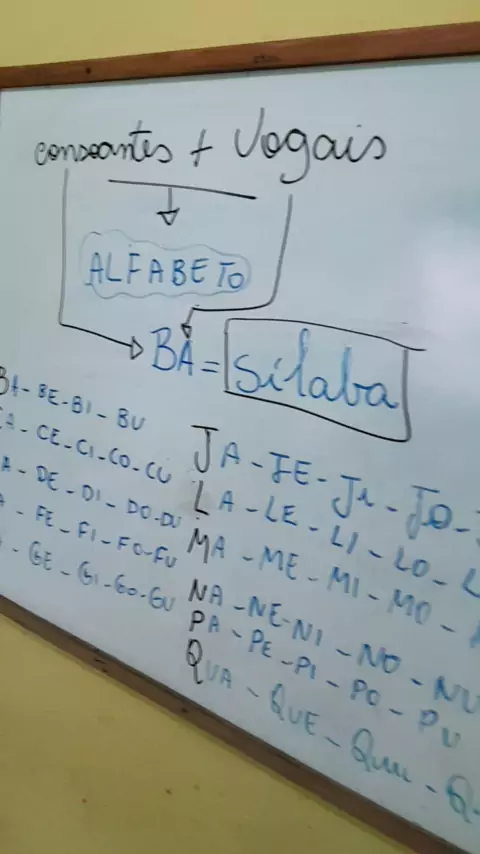 consoantes + Vogais
ALFABETO
BA = Sílaba
BA - BE - BI - BU
CA - CE - CI - CO - CU
A - DE - DI - DO - DU
A - FE - FI - FO - FU
- GE - GI - GO - GU
JA - JE - JI - JO -
LA - LE - LI - LO - L
MA - ME - MI - MO -
NA - NE - NI - NO - NU
PA - PE - PI - PO - PU
QUA - QUE - QUI - Q